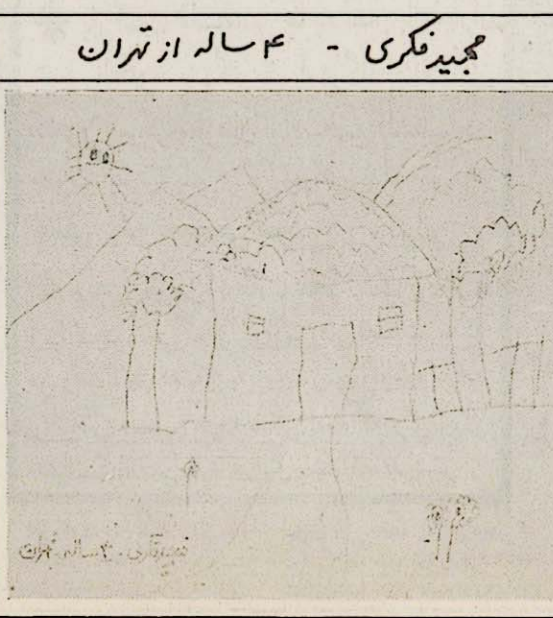 مجید فکری - ۴ ساله از تهران
مجید فکری - ۴ ساله تهران